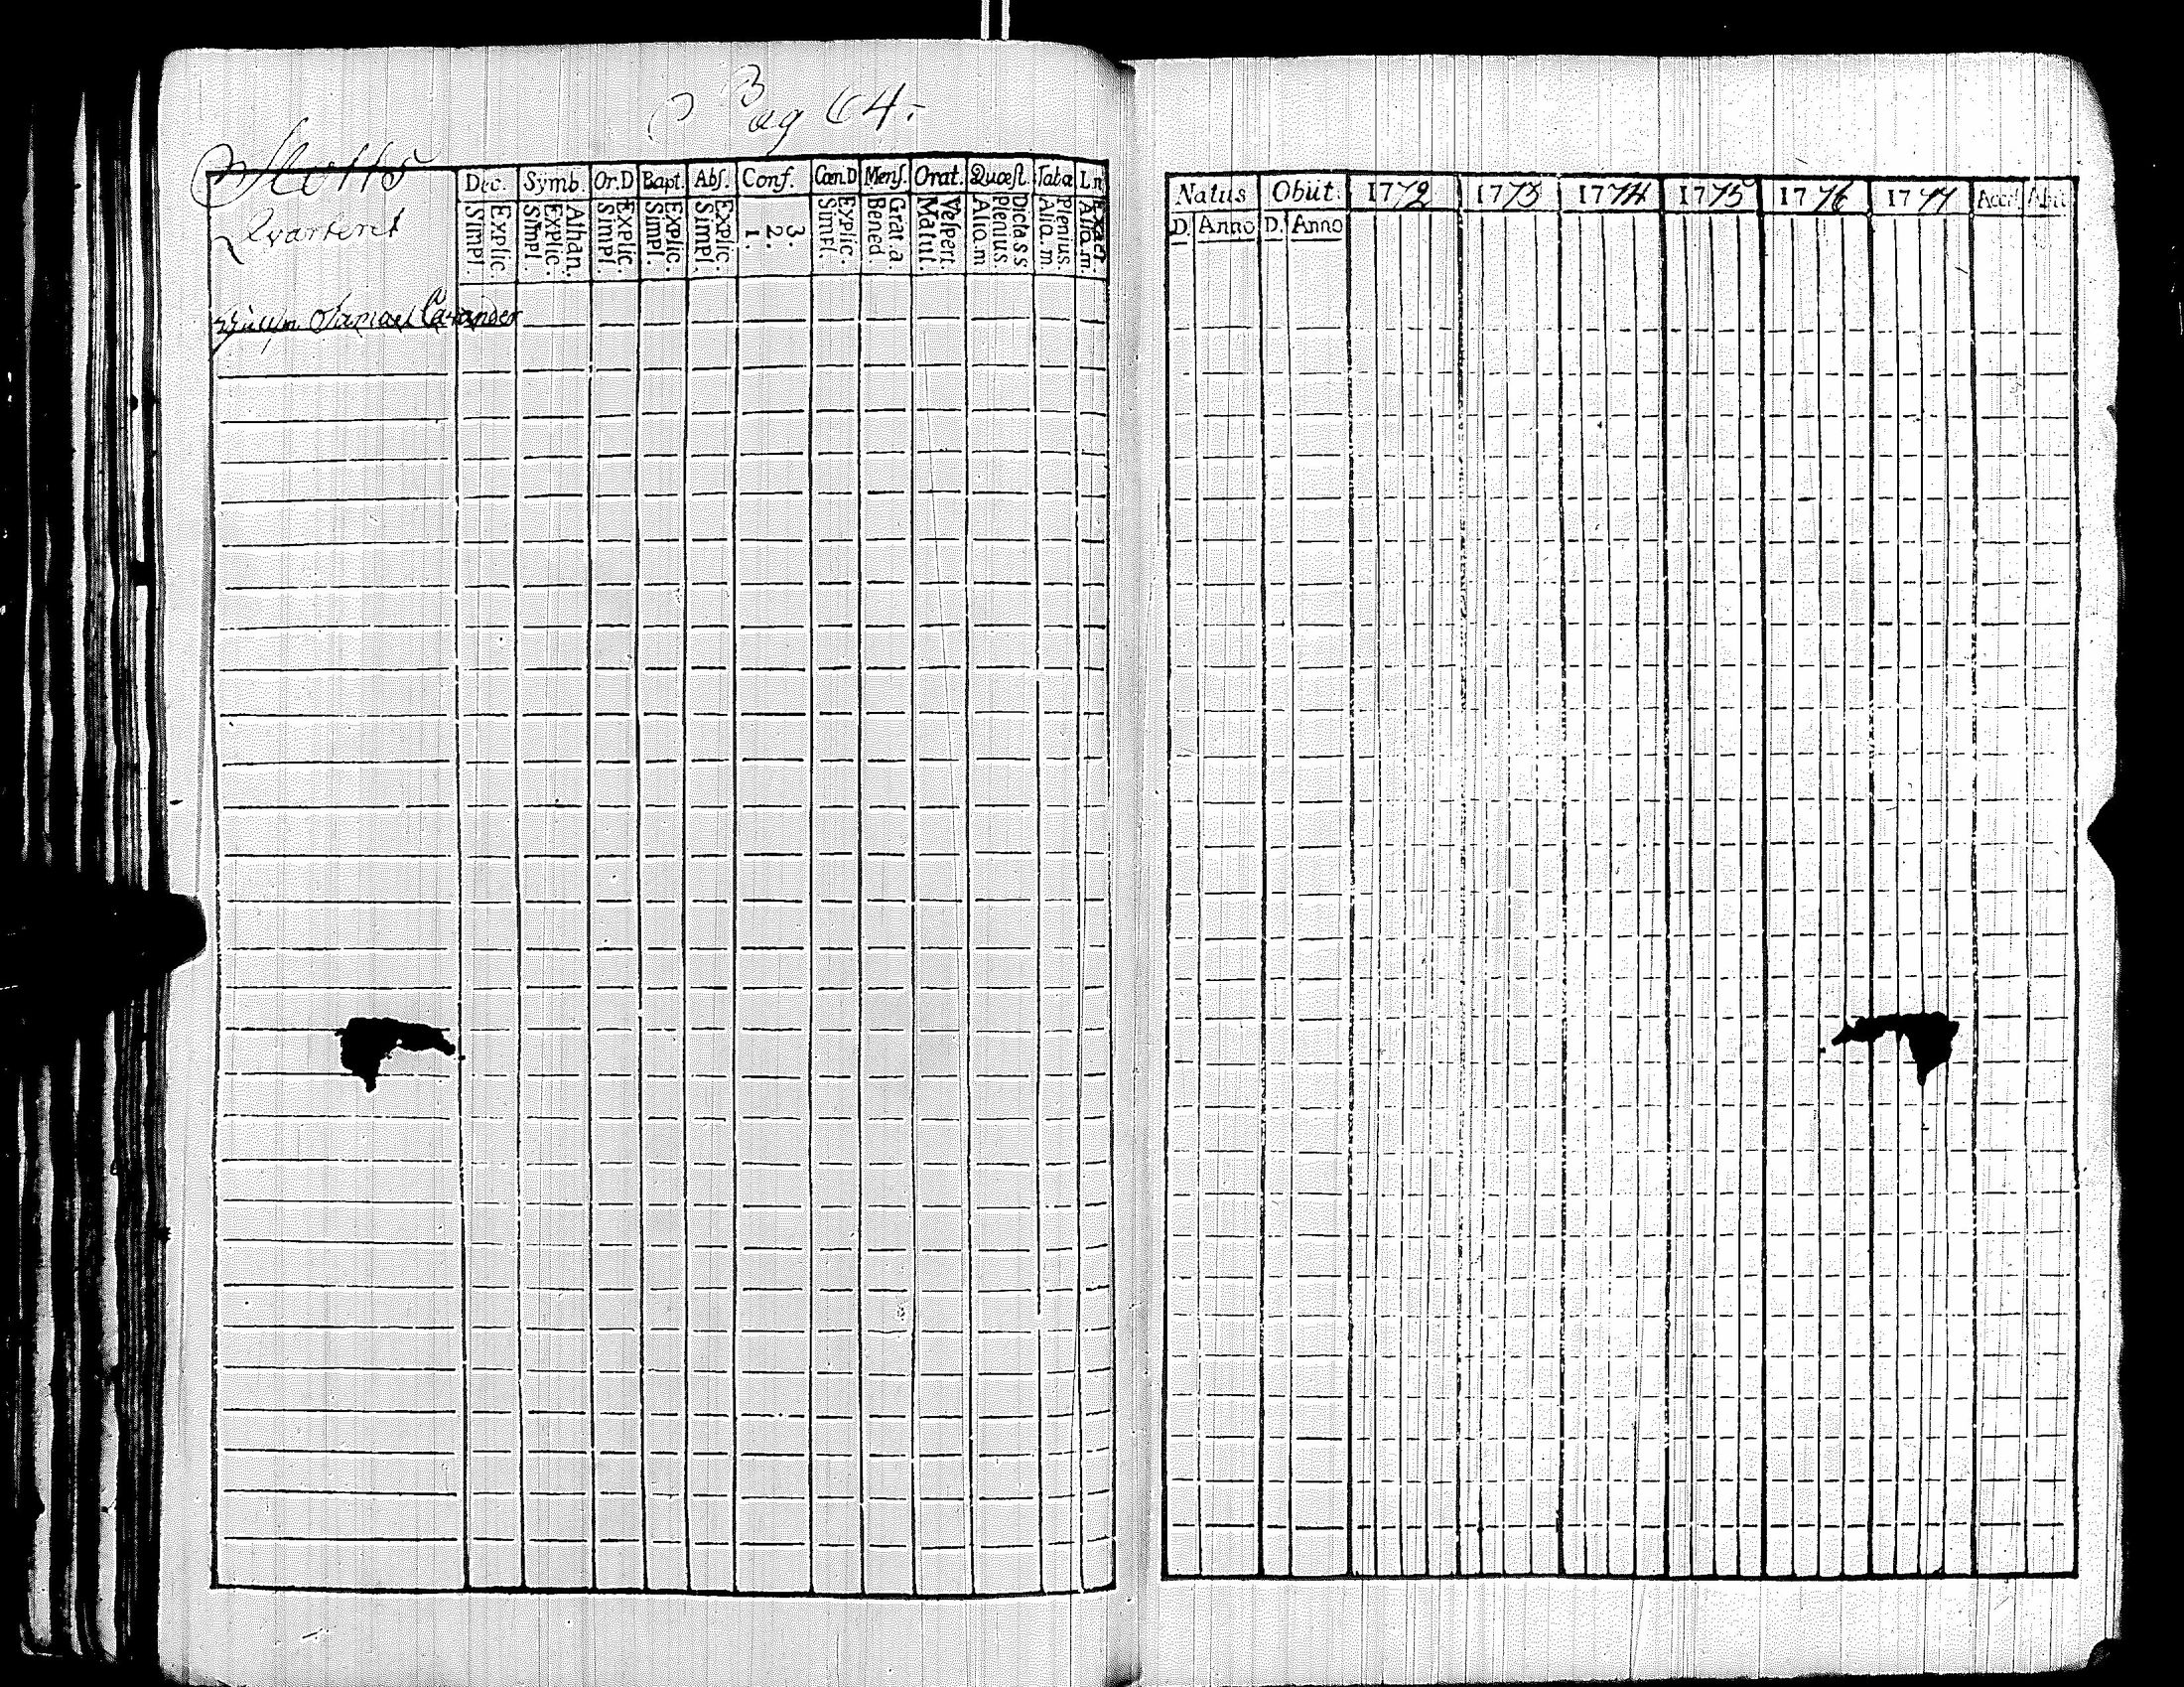 Pag 64.
Slotts
Qvarteret
Dec. Symb. Or.D Bapt. Abſ. Conf. Cœn.D Menſ. Orat. Quæſt. Taba
Explic. Simpl. Athan. Explic. Simpl. Explic. Simpl. Explic. Simpl. Explic. Simpl. 3. 2. 1. Explic. Simpl. Grat. a. Bened Veſpert. Matut. Dicta s.s. Plenius. Aliq.m Plenius. Aliq.m Exact. Aliq.m.
Samuel Carander
Natus Obiit. 1772 1773 1774 1775 1776 1777 Acceſ. Abiit
D. Anno D. Anno